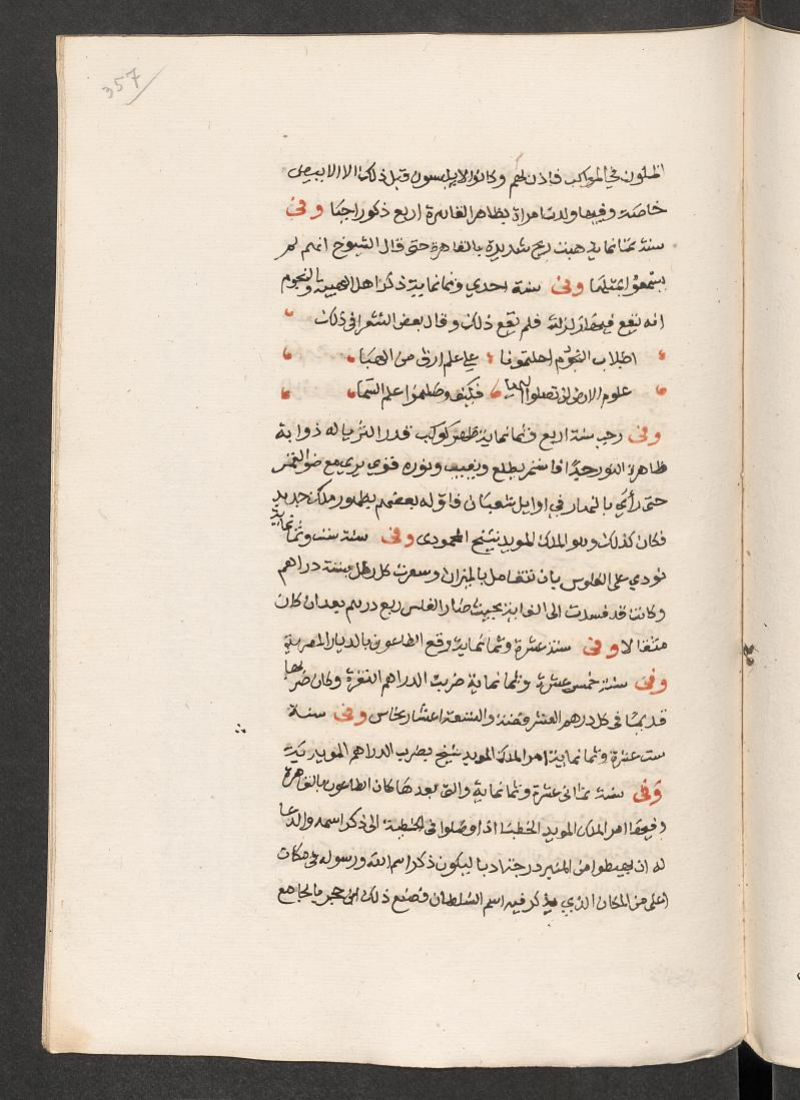 357
الملون في المواكب فاذن لهم وكانوا لا يلبسون قبل ذلك الا الابيض
خاصة وفيها ولدت امراة بظاهر القاهرة اربع ذكور احيا وفي
سنة ثمانماية هبت ريح شديدة بالقاهرة حتى قال الشيوخ انهم لم
يسمعوا بمثلها وفي سنة احدي وثمانماية ذكر اهل الهيية والنجوم
انه يقع فيها زلزلة فلم يقع ذلك وقال بعض الشعرا في ذلك
اطلاب النجوم احلتمونا علي علم ارق من الهبا
علوم الارض لم تصلوا اليها فكيف وصلتموا علم السما
وفي رجب سنة اربع وثمانماية ظهر كوكب قدر الثريا له ذوابة
ظاهرة النور جدا فاستمر يطلع ويغيب ونوره قوي يري مع ضو القمر
حتى رأي بالنهار في اوايل شعبان فاوله بعضهم بظهور ملك جديد
فكان كذلك وهو الملك المويد شيخ المحمودي وفي سنة ست وثمانماية
نودي على الفلوس بان نتعامل بالميزان وسعرت كل رطل بستة دراهم
وكانت قد فسدت الى الغاية بحيث صار الفلس ربع درهم بعد ان كان
مثقالا وفي سنة عشرة وثمانماية وقع الطاعون بالديار المصرية
وفي سنة خمس عشرة وثمانماية ضربت الدراهم النقرة وكان ضربها
قديما في كل درهم العشر فضة والتسعة اعشار نحاس وفي سنة
ست عشرة وثمانماية امر الملك المويد شيخ بضرب الدراهم المويدية
وفي سنة ثماني عشرة وثمانماية والتي بعدها كان الطاعون بالقاهرة
وفيها امر الملك المويد الخطبا اذا وصلوا في الخطبة الى ذكر اسمه والدعا
له ان يهبطوا من المنبر درجة ادبا ليكون ذكر اسم الله ورسوله في مكان
اعلى من المكان الذي يذكر فيه اسم السلطان فصنع ذلك ابن حجر بالجامع